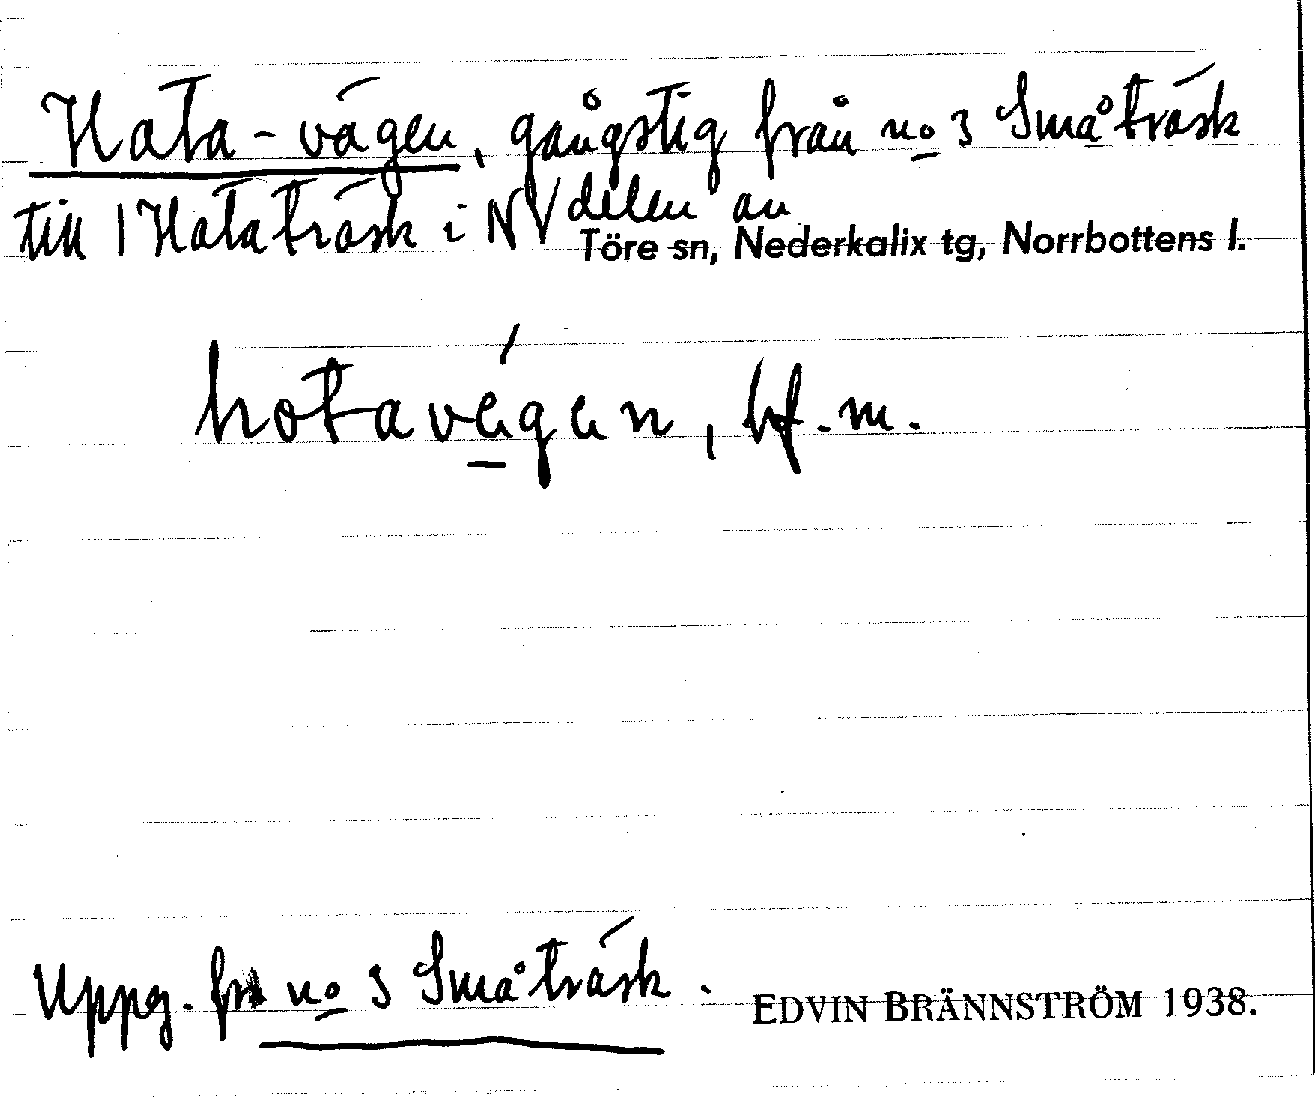 Hata-vägen, gångstig från no 3 Småträsk
till 1 Hataträsk i NV delen av
Töre sn, Nederkalix tg, Norrbottens l.
hotavégen, bf. m.
Uppg. fr no 3 Småträsk.
EDVIN BRÄNNSTRÖM 1938.